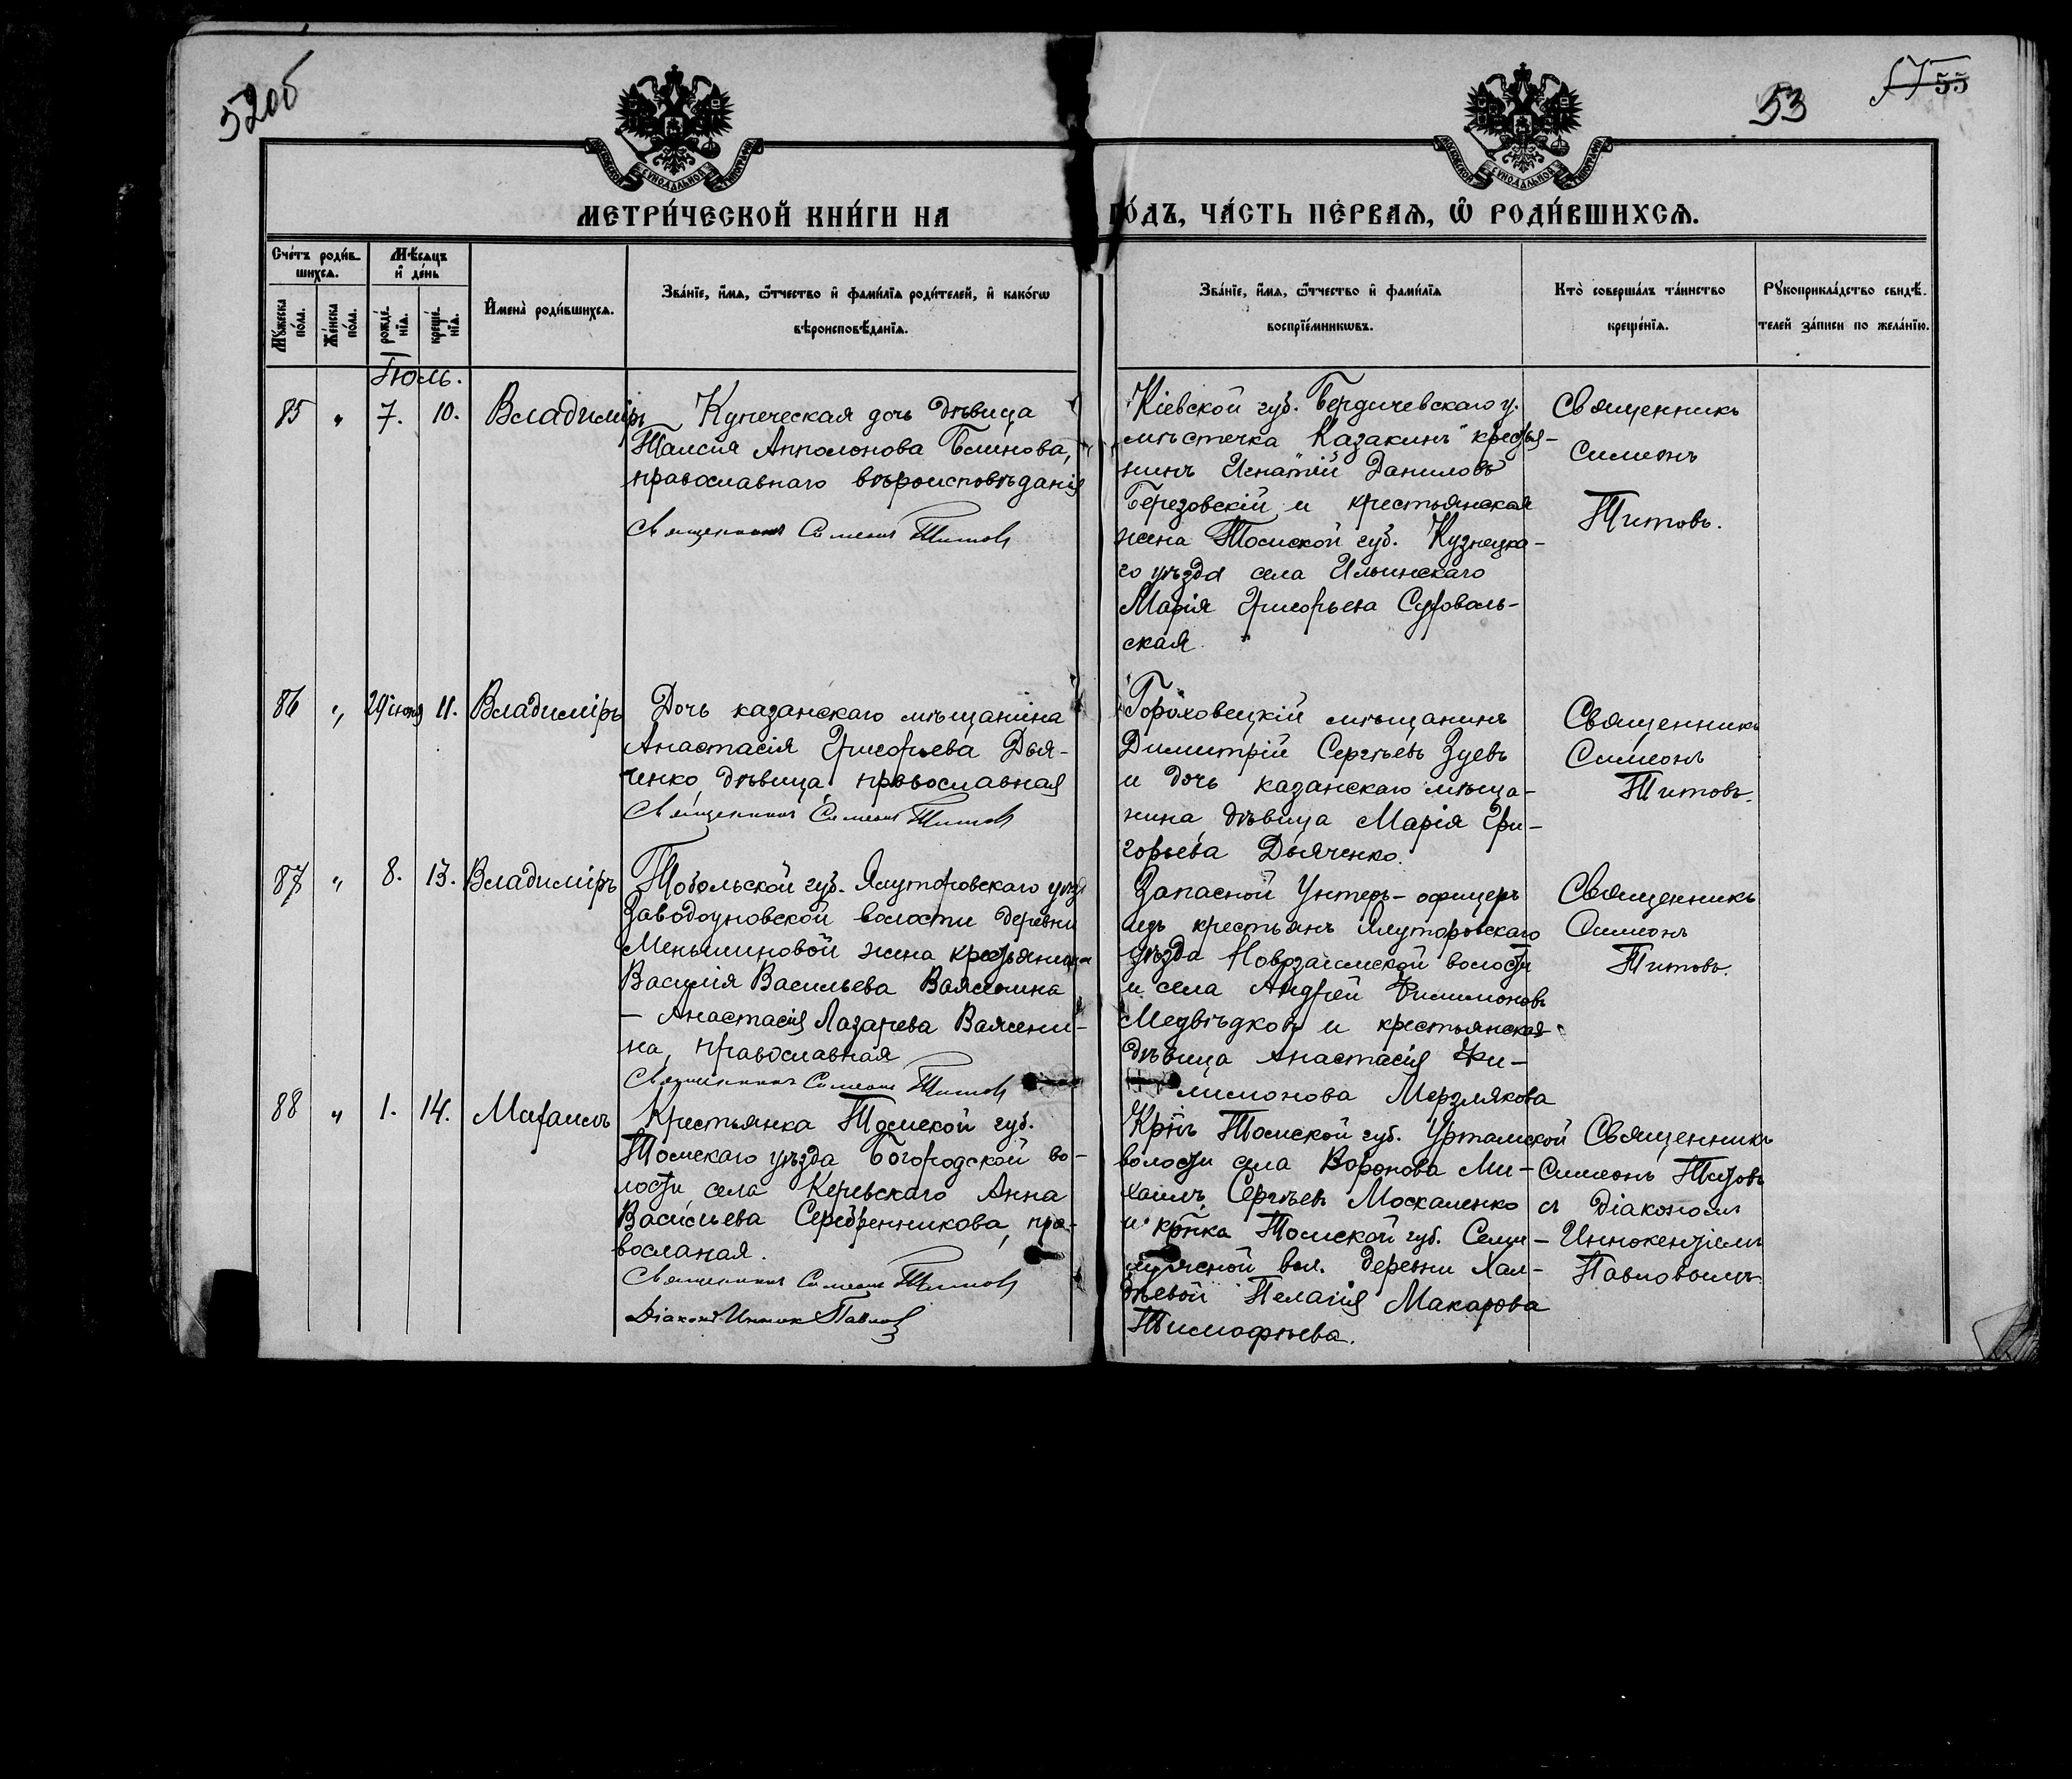 52об
53
55
МЕТРИ́ЧЕСКОЙ КНИ́ГИ НА ГО́ДЪ, ЧА́СТЬ ПЕ́РВАѦ, Ѡ҆ РОДИ́ВШИХСѦ.
Сче́тъ роди́в-
шихсѧ.
Мꙋ́жеска
по́ла.
Же́нска
по́ла.
Мѣ́сѧцъ
и҆ де́нь
рожде́-
нїѧ.
креще́-
нїѧ.
И҆мена̀ роди́вшихсѧ.
Зва́нїе, и҆́мѧ, ѻ҆́тчество и҆ фами́лїѧ роди́телей, и҆ како́гѡ
вѣроисповѣ́данїѧ.
Зва́нїе, и҆́мѧ, ѻ҆́тчество и҆ фами́лїѧ
воспрїе́мникѡвъ.
Кто̀ соверша́лъ та́инство
креще́нїѧ.
Рꙋкоприкла́дство свидѣ́-
телей за́писи по жела́нїю.
Іюль.
85 " 7. 10. Владиміръ
Купеческая дочь дѣвица
Таисія Апполонова Блинова,
православнаго вѣроисповѣданія
Священникъ Симеонъ Титовъ
Кіевской губ. Бердичевскаго у.
мѣстечка "Казакинъ" крестья-
нинъ Игнатій Даниловъ
Березовскій и крестьянская
жена Томской губ. Кузнецка-
го уѣзда села Ильинскаго
Марія Григорьева Суроваль-
ская.
Священникъ
Симеонъ
Титовъ.
86 " 29 іюня 11. Владиміръ
Дочь казанскаго мѣщанина
Анастасія Григорьева Дья-
ченко, дѣвица, православная
Священникъ Симеонъ Титовъ
Гороховецкій мѣщанинъ
Димитрій Сергѣевъ Зуевъ
и дочь казанскаго мѣща-
нина дѣвица Марія Гри-
горьева Дьяченко.
Священникъ
Симеонъ
Титовъ.
87 " 8. 13. Владиміръ
Тобольской губ. Ялуторовскаго уѣзд
Заводоуновской волости деревни
Меньшиновой жена крестьянина
Василія Васильева Важенина
— Анастасія Лазарева Важени-
на, православная
Священникъ Симеонъ Титовъ
Запасной Унтеръ-офицеръ
изъ крестьянъ Ялуторовскаго
уѣзда Новозаимской волости
и села Андрей Филимоновъ
Медвѣдковъ и крестьянская
дѣвица Анастасія Фи-
лимонова Мерзлякова
Священникъ
Симеонъ
Титовъ.
88 " 1. 14. Михаилъ
Крестьянка Томской губ.
Томскаго уѣзда Богородской во-
лости села Керевскаго Анна
Васильева Серебренникова, пра-
вославная.
Священникъ Симеонъ Титовъ
Діаконъ Иннок Павловъ
Крнъ Томской губ. Уртамской
волости села Воронова Ми-
хаилъ Сергѣевъ Москаленко
и крнка Томской губ. Семи-
лужной вол. деревни Хал-
дѣевой Пелагія Макарова
Тимофѣева.
Священникъ
Симеонъ Титовъ
съ Діакономъ
Иннокентіемъ
Павловымъ.